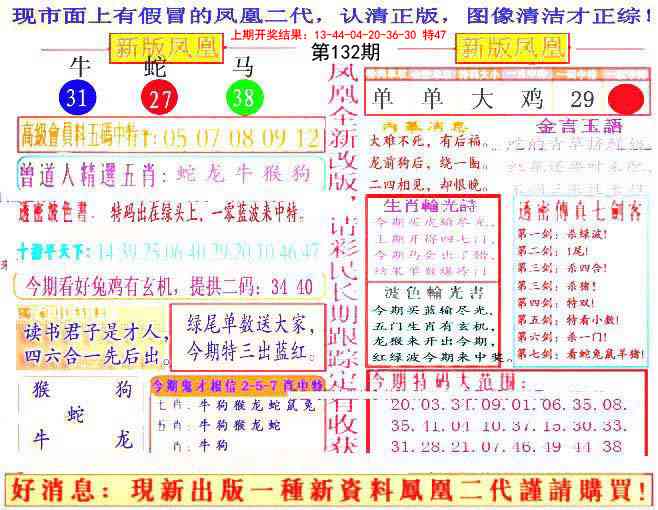 现市面上有假冒的凤凰二代，认清正版，图像清洁才正综！
上期开奖结果：13-44-04-20-36-30 特47
新版凤凰
第132期
新版凤凰
牛 蛇 马
31 27 38
高級會員料五碼中特十：05 07 08 09 12
曾道人精選五肖：蛇 龙 牛 猴 狗
透密波色書：特码出在绿头上，一零蓝波来中特。
今期看好兔鸡有玄机，提拱二码：34 40
读书君子是才人，
四六合一先后出。
绿尾单数送大家，
今期特三出蓝红。
猴 狗
蛇
牛 龙
今期鬼才报信2-5-7肖中特
七肖：牛狗猴龙蛇鼠兔
五肖：牛狗猴龙蛇
肖：牛狗
凤凰全新改版，请彩民长期跟踪定有收获
单 单 大 鸡 29
内幕消息
大难不死，有后福。
龙前狗后，绕一圈。
二四相见，却恨晚。
金言玉語
生肖輪光詩
波色輪光書
今期买蓝输尽光，
五门生肖有玄机，
龙猴来开出今期，
红绿波今期来中奖。
透密傳真七劍客
第一剑：杀绿波！
第二剑：1尾！
第三剑：杀四合！
第三剑：杀猪！
第四剑：特双！
第五剑：特看小数！
第六剑：杀一门！
第七剑：看蛇兔鼠羊猪！
今期特码大范围：
20.03.31.09.01.06.35.08.
35.41.04 10.37.15.30.33.
31.28.21.07.46.49.44 38
好消息：現新出版一種新資料鳳凰二代謹請購買！